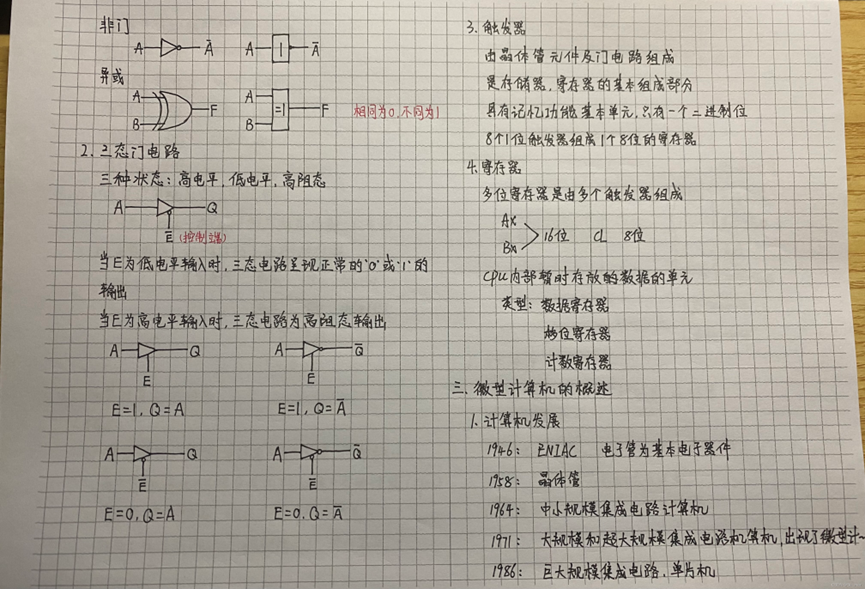 非门
A Ā A 1 Ā
异或
A B F A B =1 F 相同为0,不同为1
2. 三态门电路
三种状态：高电平,低电平,高阻态
A Q
Ē (控制端)
当E为低电平输入时,三态电路呈现正常的'0'或'1'的
输出
当E为高电平输入时,三态电路为高阻态输出
A Q A Q̄
E E
E=1, Q=A E=1, Q=Ā
A Q A Q̄
Ē Ē
E=0, Q=A E=0, Q=Ā
3. 触发器
由晶体管元件及门电路组成
是存储器,寄存器的基本组成部分
具有记忆功能基本单元,只存一个二进制位
8个1位触发器组成1个8位的寄存器
4. 寄存器
多位寄存器是由多个触发器组成
Ax
16位 CL 8位
Bx
cpu内部暂时存放的数据的单元
类型：数据寄存器
移位寄存器
计数寄存器
三. 微型计算机的概述
1. 计算机发展
1946： ENIAC 电子管为基本电子器件
1958： 晶体管
1964： 中小规模集成电路计算机
1971： 大规模和超大规模集成电路机算机,出现了微型计~
1986： 巨大规模集成电路,单片机